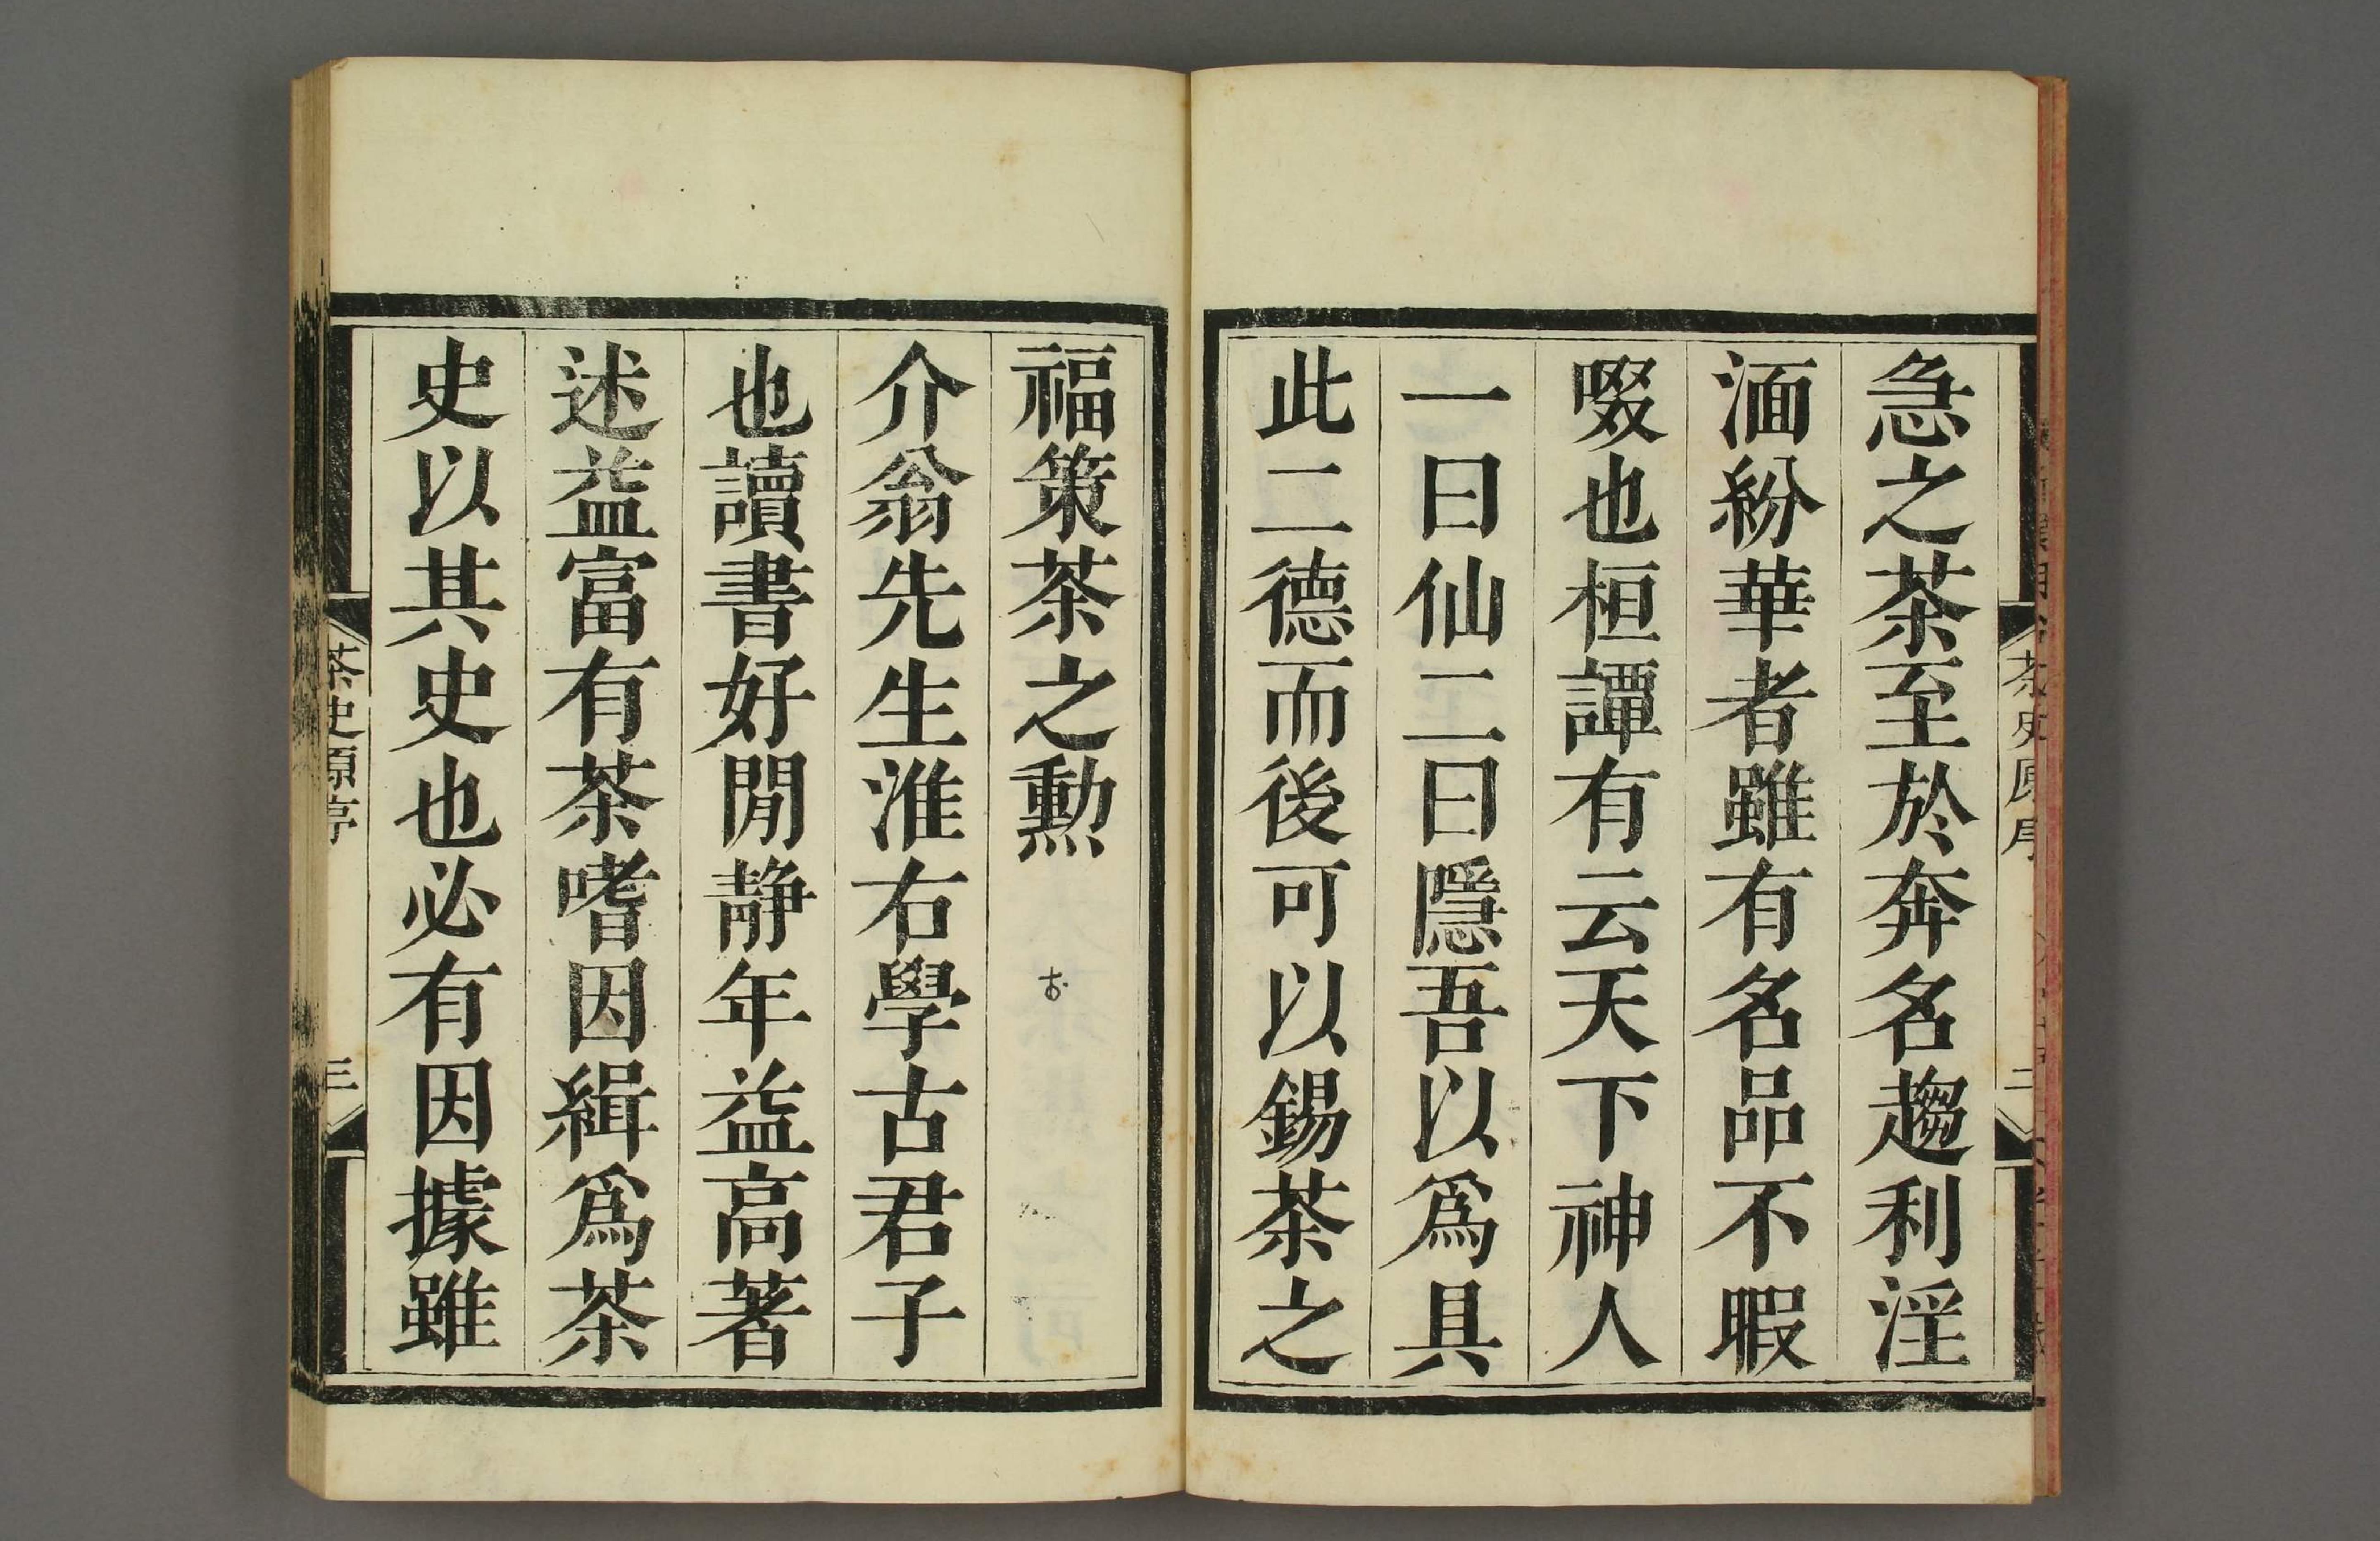 急之茶至於奔名趨利淫
湎紛華者雖有名品不暇
啜也桓譚有云天下神人
一曰仙二曰隱吾以為具
此二德而後可以錫茶之
福策茶之勲
介翁先生淮右學古君子
也讀書好閒静年益高著
述益富有茶嗜因緝為茶
史以其史也必有因據雖
茶史原序
三